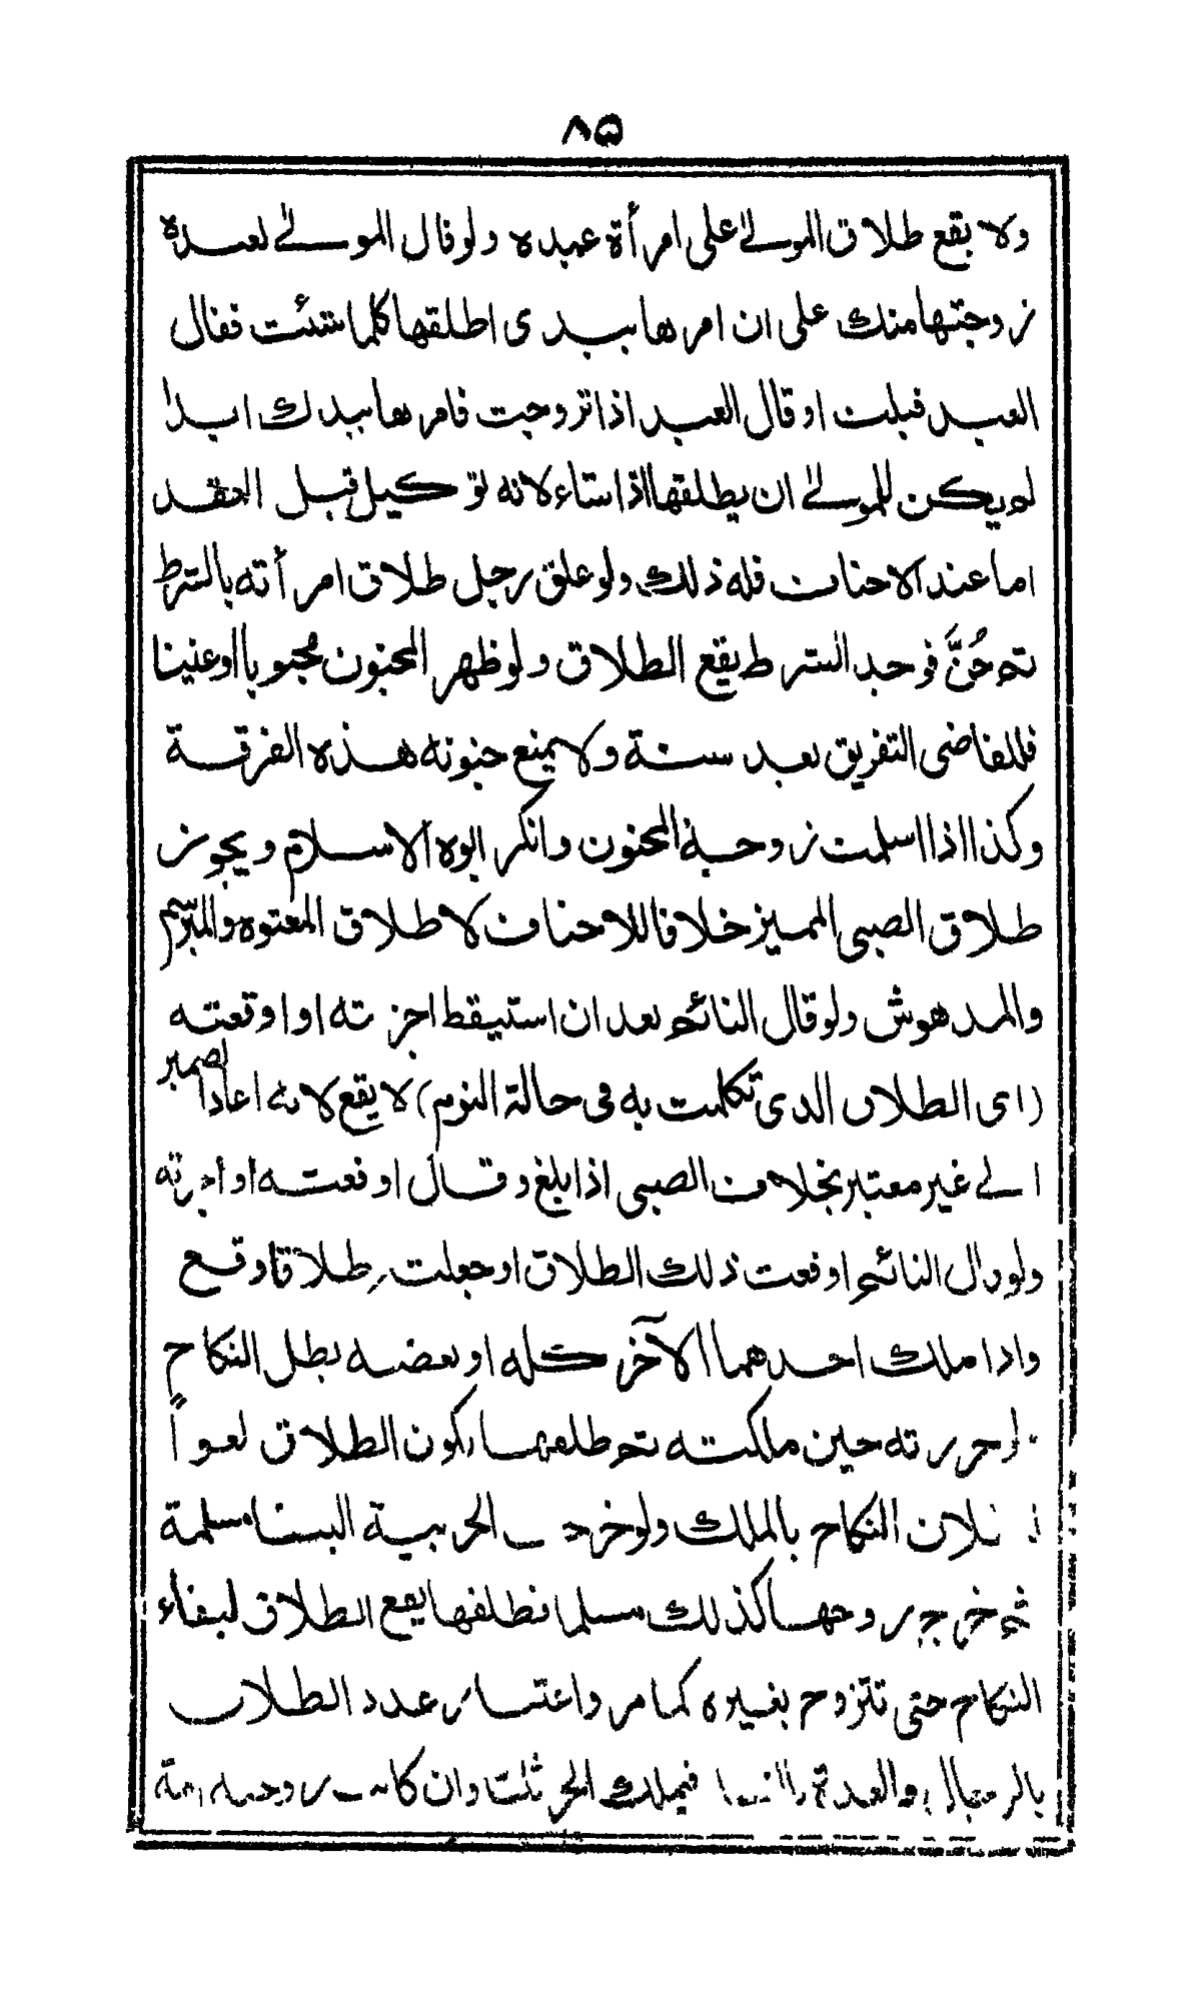 ٨٥
ولا يقع طلاق المولى على امرأة عبده ولو قال المولى لعبده
زوجتها منك على ان امرها بيدى اطلقها كلما شئت فقال
العبد قبلت او قال العبد اذا تزوجت فامرها بيدك ابدا
لم يكن للمولى ان يطلقها اذا شاء لانه توكيل قبل العقد
اما عند الاحناف فله ذلك ولو علق رجل طلاق امرأته بالشرط
ثم جُنَّ فوجد الشرط يقع الطلاق ولو ظهر المجنون مجبوبا او عنينا
فللقاضى التفريق بعد سنة ولا يمنع جنونه هذه الفرقة
وكذا اذا اسلمت زوجة المجنون وانكر ابوه الاسلام ويجوز
طلاق الصبى المميز خلافا للاحناف لا طلاق المعتوه والمبرسم
والمدهوش ولو قال النائم بعد ان استيقظ اجزته او اوقعته
(اى الطلاق الذى تكلمت به فى حالة النوم) لا يقع لانه اعاد الضمير
الى غير معتبر بخلاف الصبى اذا بلغ وقال اوقعته او اجزته
ولو قال النائم اوقعت ذلك الطلاق او جعلته طلاقا وقع
واذا ملك احدهما الآخر كله او بعضه بطل النكاح
ولو حررته حين ملكته ثم طلقها يكون الطلاق لغواً
لبطلان النكاح بالملك ولو خرجت الحربية الينا مسلمة
ثم خرج زوجها كذلك مسلما فطلقها يقع الطلاق لبقاء
النكاح حتى تتزوج بغيره كما مر واعتبار عدد الطلاق
بالرجال والعدة بالنساء فيملك الحر ثلثا وان كانت زوجته امة